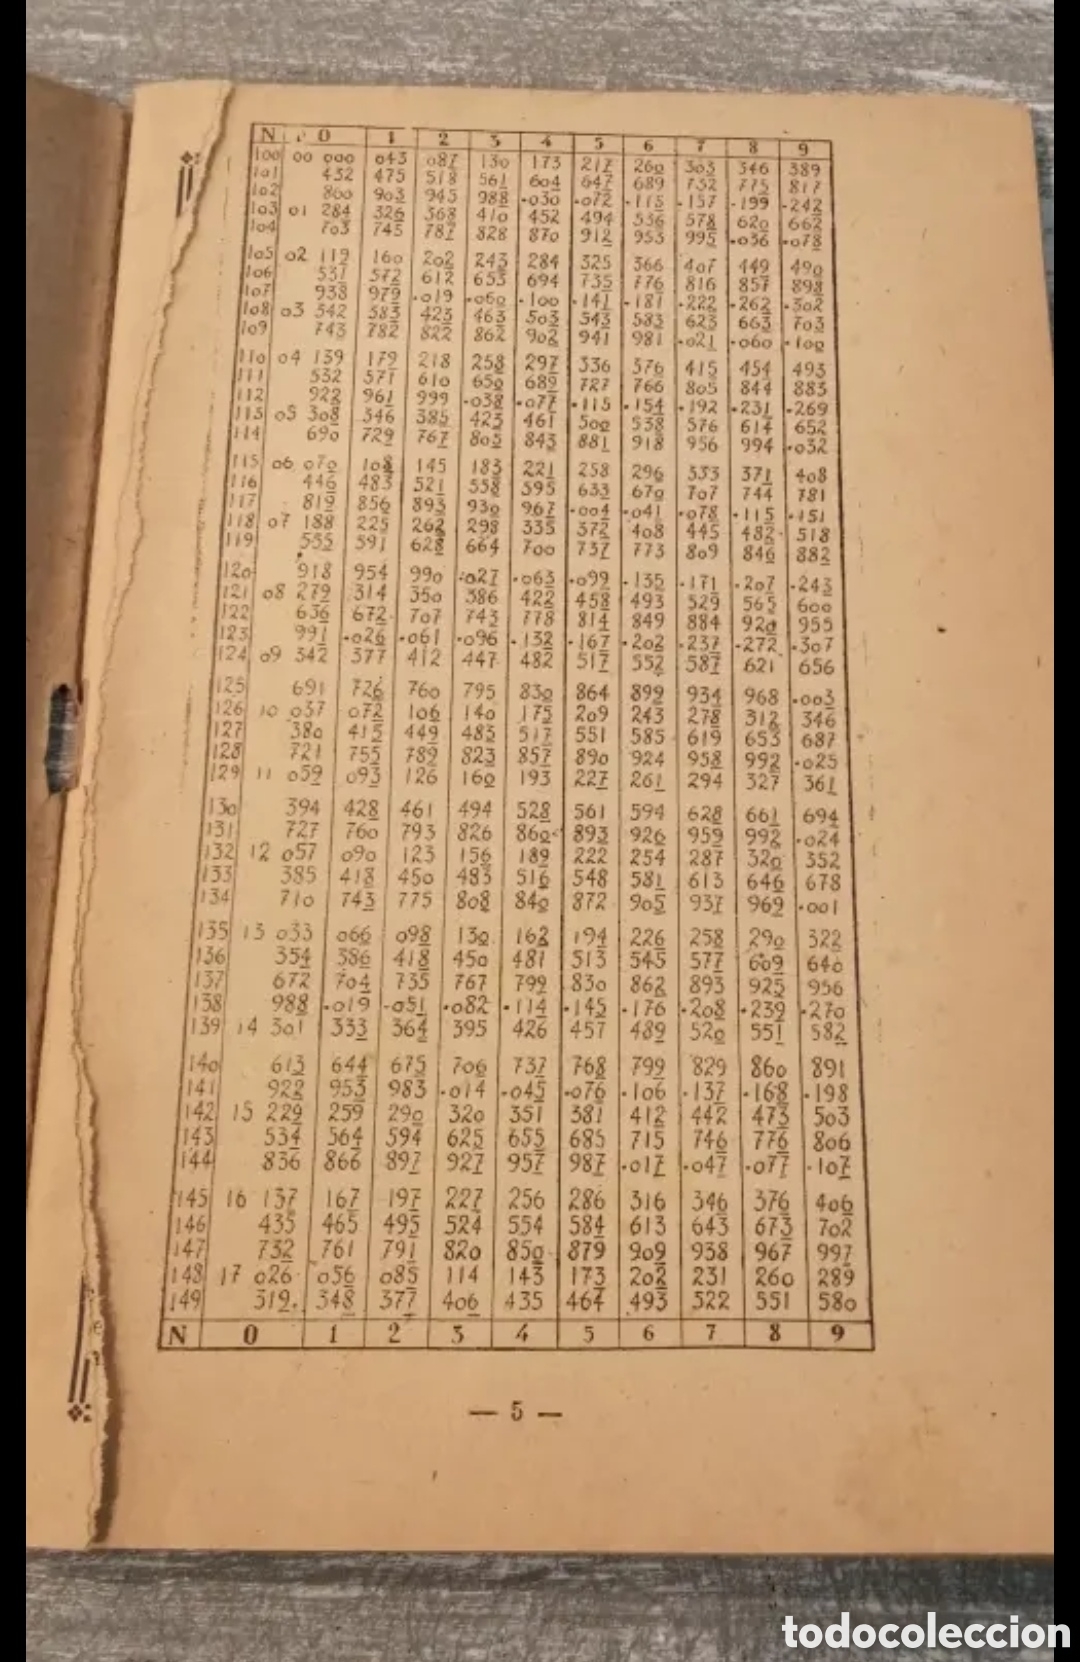 N 0 1 2 3 4 5 6 7 8 9
100 00 000 043 087 130 173 217 260 303 346 389
101 432 475 518 561 604 647 689 732 775 817
102 860 903 945 988 ·030 ·072 ·115 ·157 ·199 ·242
103 01 284 326 368 410 452 494 536 578 620 662
104 703 745 787 828 870 912 953 995 ·036 ·078
105 02 119 160 202 243 284 325 366 407 449 490
106 531 572 612 653 694 735 776 816 857 898
107 938 979 ·019 ·060 ·100 ·141 ·181 ·222 ·262 ·302
108 03 342 383 423 463 503 543 583 623 663 703
109 743 782 822 862 902 941 981 ·021 ·060 ·100
110 04 139 179 218 258 297 336 376 415 454 493
111 532 571 610 650 689 727 766 805 844 883
112 922 961 999 ·038 ·077 ·115 ·154 ·192 ·231 ·269
113 05 308 346 385 423 461 500 538 576 614 652
114 690 729 767 805 843 881 918 956 994 ·032
115 06 070 108 145 183 221 258 296 333 371 408
116 446 483 521 558 595 633 670 707 744 781
117 819 856 893 930 967 ·004 ·041 ·078 ·115 ·151
118 07 188 225 262 298 335 372 408 445 482 518
119 555 591 628 664 700 737 773 809 846 882
120 918 954 990 ·027 ·063 ·099 ·135 ·171 ·207 ·243
121 08 279 314 350 386 422 458 493 529 565 600
122 636 672 707 743 778 814 849 884 920 955
123 991 ·026 ·061 ·096 ·132 ·167 ·202 ·237 ·272 ·307
124 09 342 377 412 447 482 517 552 587 621 656
125 691 726 760 795 830 864 899 934 968 ·003
126 10 037 072 106 140 175 209 243 278 312 346
127 380 415 449 483 517 551 585 619 653 687
128 721 755 789 823 857 890 924 958 992 ·025
129 11 059 093 126 160 193 227 261 294 327 361
130 394 428 461 494 528 561 594 628 661 694
131 727 760 793 826 860 893 926 959 992 ·024
132 12 057 090 123 156 189 222 254 287 320 352
133 385 418 450 483 516 548 581 613 646 678
134 710 743 775 808 840 872 905 937 969 ·001
135 13 033 066 098 130 162 194 226 258 290 322
136 354 386 418 450 481 513 545 577 609 640
137 672 704 735 767 799 830 862 893 925 956
138 988 ·019 ·051 ·082 ·114 ·145 ·176 ·208 ·239 ·270
139 14 301 333 364 395 426 457 489 520 551 582
140 613 644 675 706 737 768 799 829 860 891
141 922 953 983 ·014 ·045 ·076 ·106 ·137 ·168 ·198
142 15 229 259 290 320 351 381 412 442 473 503
143 534 564 594 625 655 685 715 746 776 806
144 836 866 897 927 957 987 ·017 ·047 ·077 ·107
145 16 137 167 197 227 256 286 316 346 376 406
146 435 465 495 524 554 584 613 643 673 702
147 732 761 791 820 850 879 909 938 967 997
148 17 026 056 085 114 143 173 202 231 260 289
149 319 348 377 406 435 464 493 522 551 580
N 0 1 2 3 4 5 6 7 8 9
— 5 —
todocoleccion